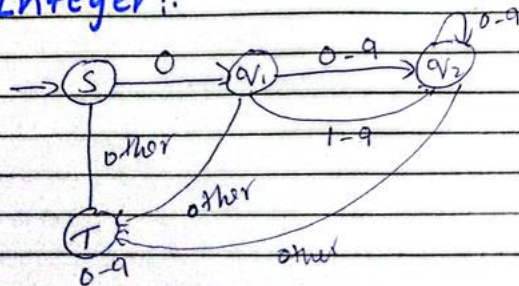 Integer :.
0-9
S 0 q1 0-9 q2
1-9
other
other
T other
0-9